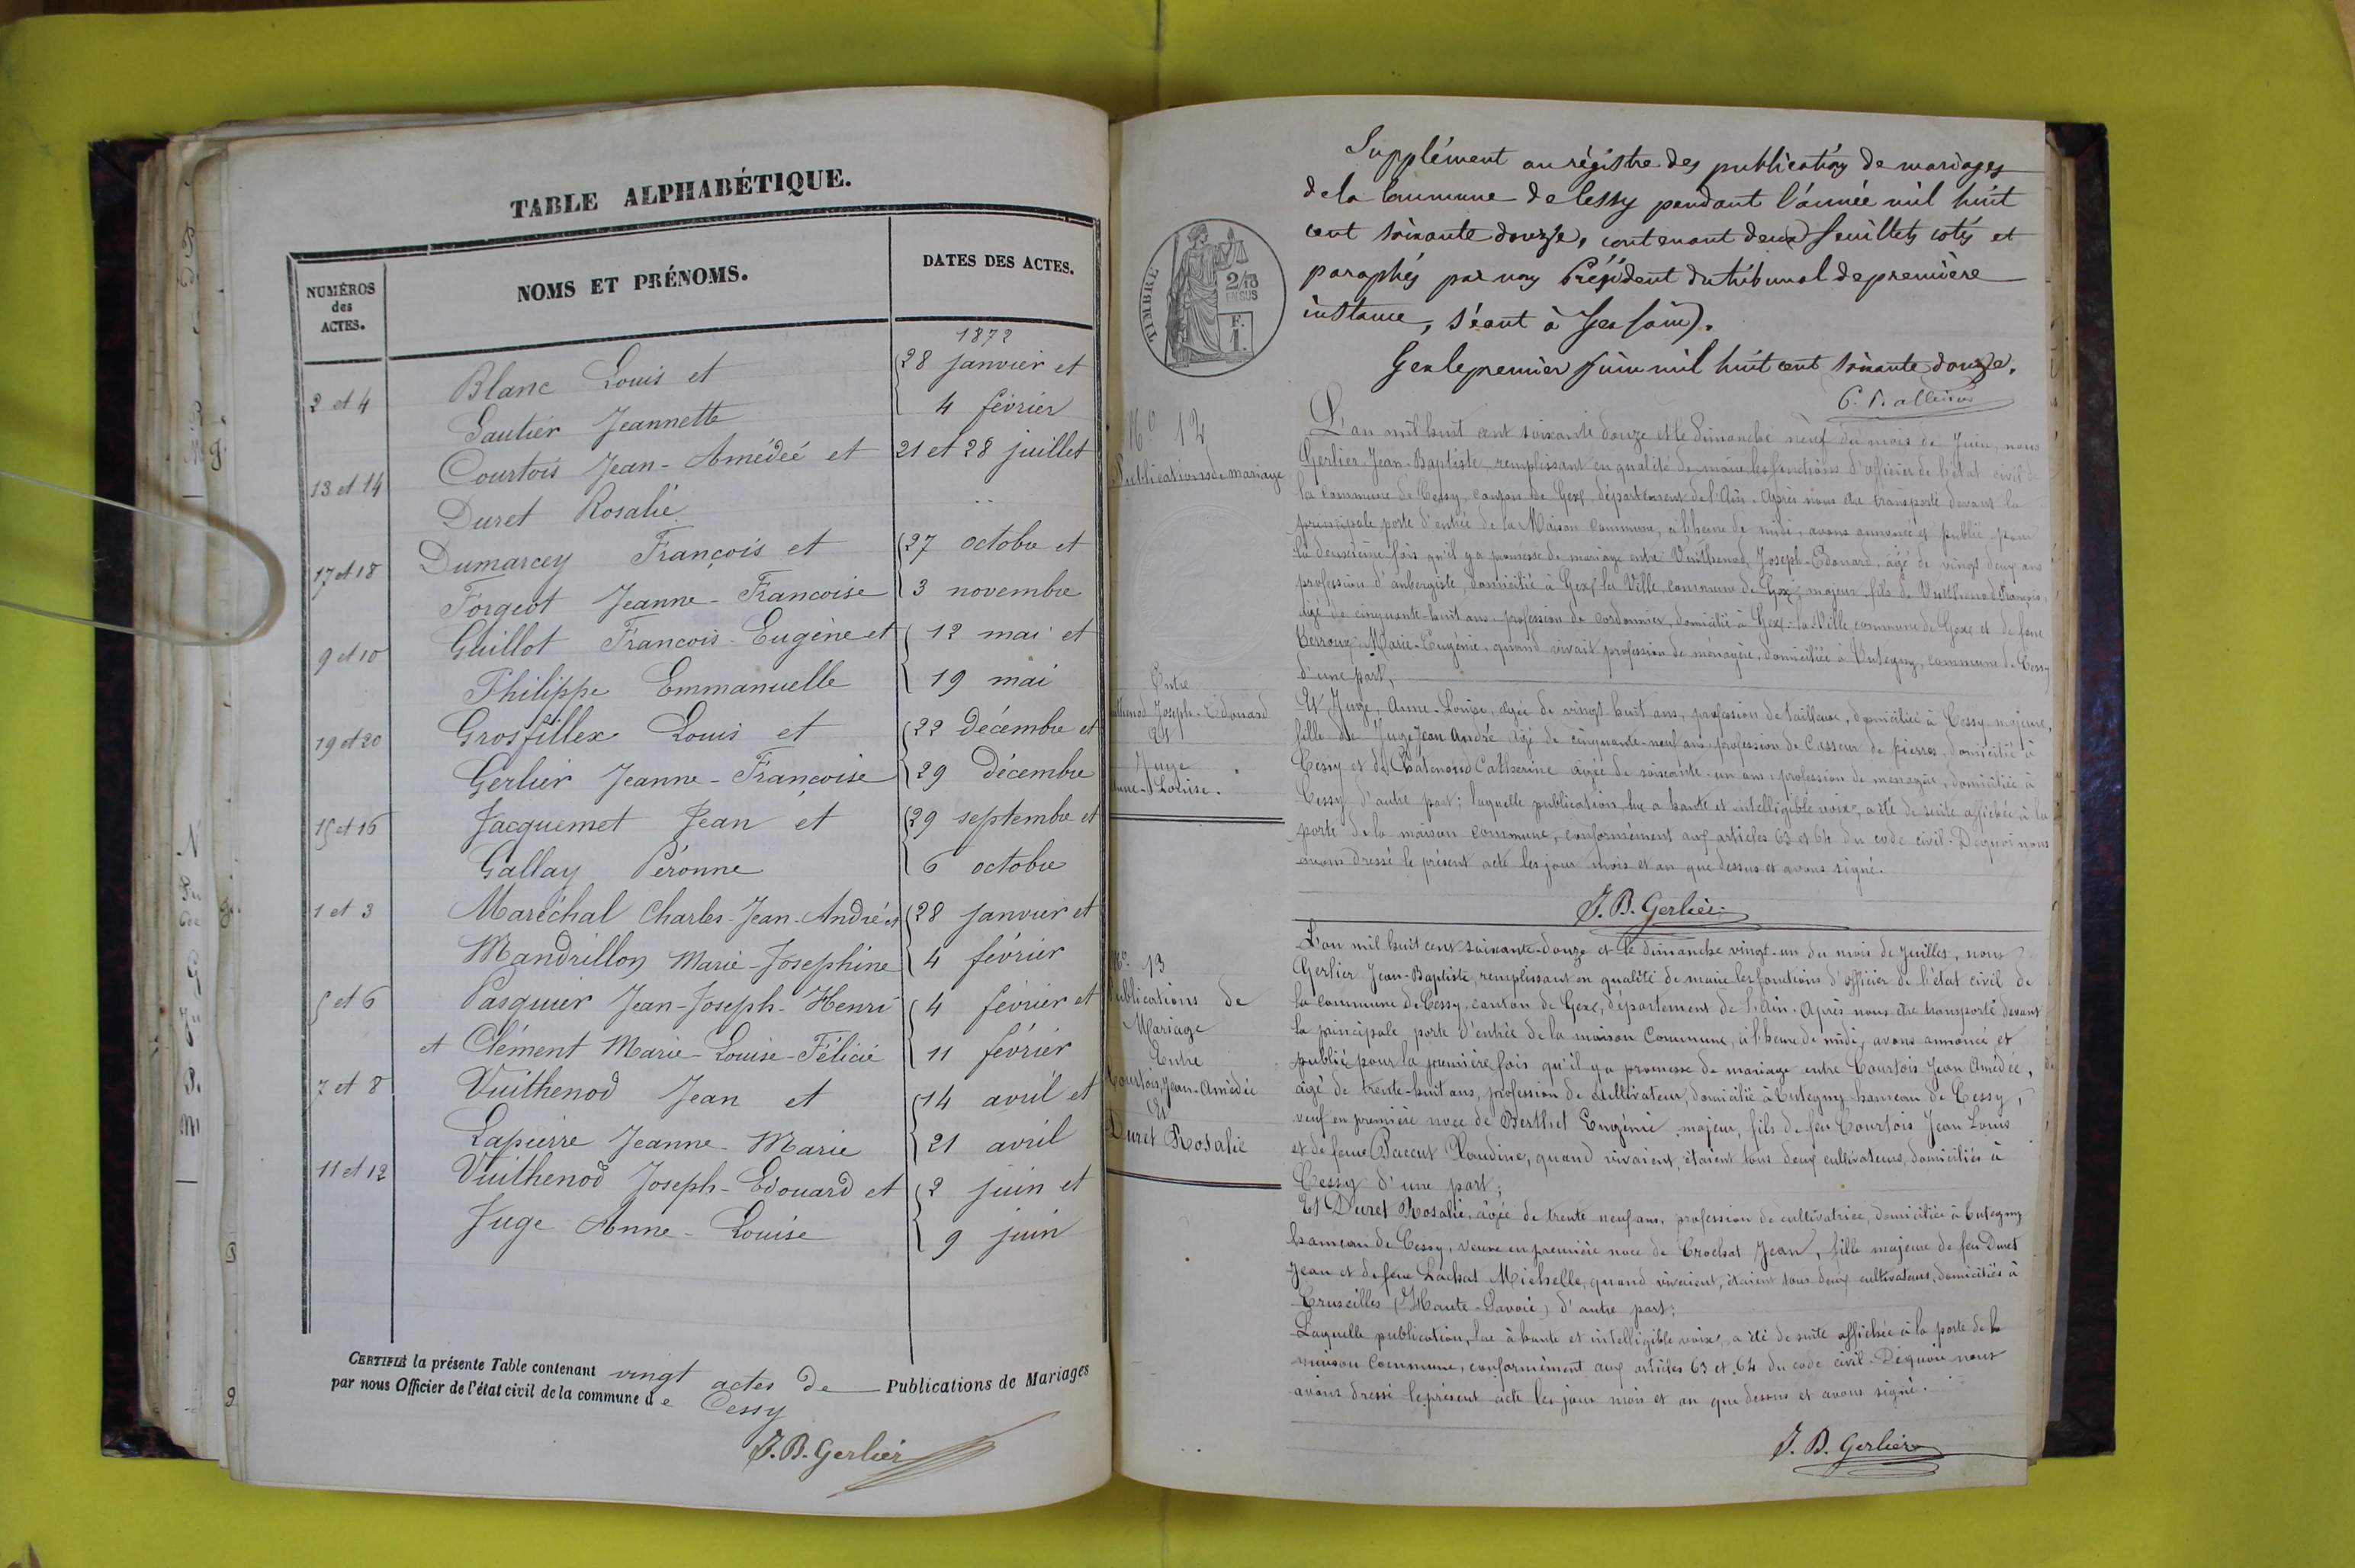 TABLE ALPHABÉTIQUE.
NUMÉROS
des
ACTES.
NOMS ET PRÉNOMS.
DATES DES ACTES.
1872
2 et 4
Blanc Louis et
28 janvier et
Gautier Jeannette
4 février
13 et 14
Courtois Jean-Amédée et
21 et 28 juillet
Duret Rosalie
17 et 18
Dumarcey François et
27 octobre et
Forgeot Jeanne-Francoise
3 novembre
9 et 10
Guillot Francois-Eugène et
12 mai et
Philippe Emmanuelle
19 mai
19 et 20
Grosfillex Louis et
22 décembre et
Gerlier Jeanne-Françoise
29 décembre
15 et 16
Jacquemet Jean et
29 septembre et
Gallay Péronne
6 octobre
1 et 3
Maréchal Charles-Jean-André et
28 janvier et
Mandrillon Marie-Josephine
4 février
5 et 6
Pasquier Jean-Joseph-Henri
4 février et
et Clément Marie-Louise-Félicie
11 février
7 et 8
Vuithenod Jean et
14 avril et
Lapierre Jeanne-Marie
21 avril
11 et 12
Vuithenod Joseph-Edouard et
2 juin et
Juge Anne-Louise
9 juin
CERTIFIÉ la présente Table contenant vingt actes de Publications de Mariages
par nous Officier de l'état civil de la commune de Cessy
J.B. Gerlier
TIMBRE
2/10
EN SUS
F.
1.
Supplément au régistre des publication de mariages
de la Commune de Cessy pendant l'année mil huit
cent soixante douze, contenant deux feuillets cotés et
paraphés par nous Président du tribunal de première
instance, séant à Gex (ain).
Gex le premier juin mil huit cent soixante douze.
N° 12
Publications de mariage
Entre
Joseph-Edouard
Et
Juge
Louise.
L'an mil huit cent soixante douze et le dimanche neuf du mois de Juin, nous
Gerlier Jean-Baptiste, remplissant en qualité de maire les fonctions d'officier de l'état civil de
la commune de Cessy, canton de Gex, département de l'Ain. Après nous être transporté devant la
principale porte d'entrée de la Maison Commune, à l'heure de midi, avons annoncé et publié pour
la deuxième fois qu'il y a promesse de mariage entre Vuithenod, Joseph-Edouard, âgé de vingt deux ans
profession d'aubergiste, domicilié à Gex la Ville, commune de Gex, majeur fils de Vuithenod François,
âgé de cinquante-huit ans, profession de cordonnier, domicilié à Gex-la-Ville, commune de Gex et de feue
Marie-Eugénie, quand vivait profession de menagère, domiciliée à commune de Cessy
d'une part,
Et Juge, Anne-Louise, agée de vingt huit ans, profession de tailleuse, domiciliée à Cessy majeure,
fille de Juge Jean André âgé de cinquante-neuf ans, profession de Casseur de pierres, domicilié à
Cessy et de Catherine âgée de soixante-un ans, profession de menagère, domiciliée à
Cessy d'autre part; laquelle publication, lue a haute et intelligible voix, a été de suite affichée à la
porte de la maison commune, conformément aux articles 63 et 64 du code civil. De quoi nous
avons dressé le présent acte les jour mois et an que dessus et avons signé.
J.B. Gerlier
N° 13
Publications de
Mariage
Entre
Courtois, Jean-Amédée
Et
Duret Rosalie
L'an mil huit cent soixante-douze et le dimanche vingt-un du mois de Juillet, nous
Gerlier Jean-Baptiste, remplissant en qualité de maire les fonctions d'officier de l'état civil de
la commune de Cessy, canton de Gex, département de l'Ain. Après nous être transporté devant
la principale porte d'entrée de la maison Commune, à l'heure de midi, avons annoncé et
publié pour la première fois qu'il y a promesse de mariage entre Courtois Jean Amédée,
âgé de trente-huit ans, profession de cultivateur, domicilié à hameau de Cessy,
veuf en première noce de Berthet Eugénie, majeur, fils de feu Courtois Jean Louis
et de feue quand vivaient, étaient tous deux cultivateurs, domiciliés à
Cessy d'une part;
Et Duret Rosalie, âgée de trente neuf ans, profession de cultivatrice, domiciliée à
hameau de Cessy, veuve en première noce de Crochat Jean, fille majeure de feu Duret
Jean et de feue Lachat Michelle, quand vivaient, étaient tous deux cultivateurs, domiciliés à
Cruseilles (Haute-Savoie) d'autre part;
Laquelle publication, lue à haute et intelligible voix, a été de suite affichée à la porte de la
maison Commune, conformément aux articles 63 et 64 du code civil. De quoi nous
avons dressé le présent acte les jour mois et an que dessus et avons signé.
J.B. Gerlier